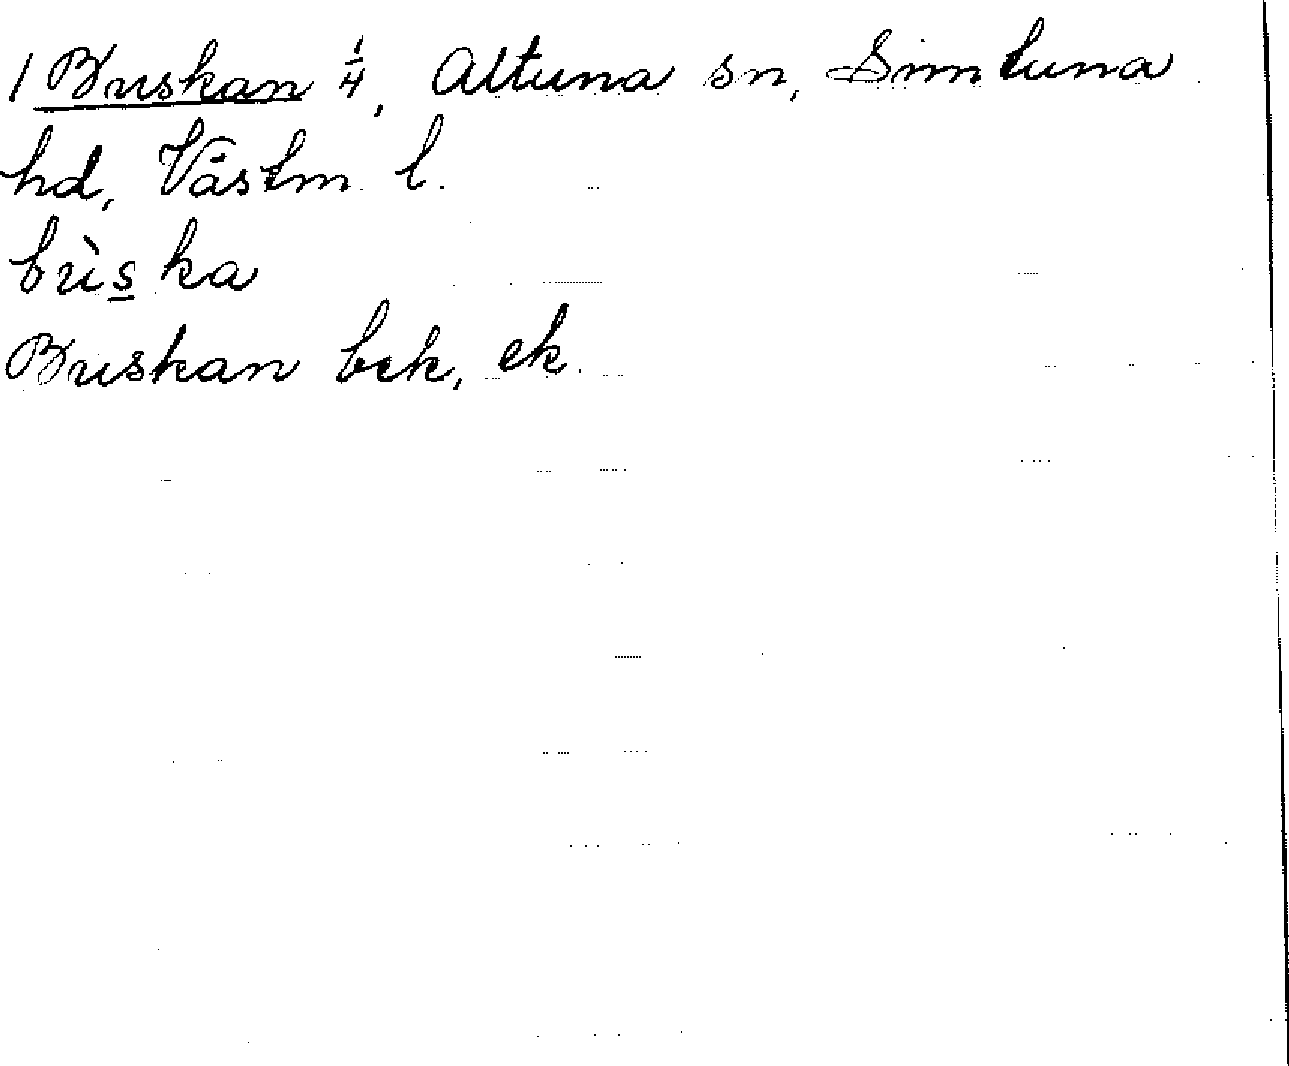 1 Buskan 1/4, Altuna sn, Simtuna
hd, Västm. l.
bùs̲ka
Buskan bek, ek.